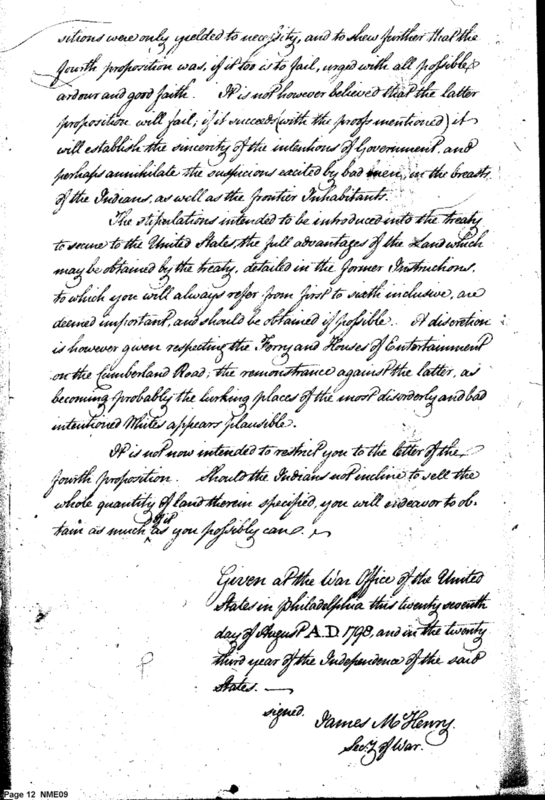 sitions were only yielded to necessity, and to shew further that the
fourth proposition was, if it too is to fail, urged with all possible
ardour and good faith. It is not however believed that the latter
proposition will fail; if it succeeds (with the proofs mentioned) it
will establish the sincerity of the intentions of Government, and
perhaps annihilate the suspicions excited by bad men, in the breasts
of the Indians, as well as the frontier Inhabitants.
The stipulations intended to be introduced into the treaty
to secure to the United States, the full advantages of the Land which
may be obtained by the treaty, detailed in the former Instructions,
to which you will always refer from first to sixth inclusive, are
deemed important, and should be obtained if possible. A discretion
is however given respecting the Ferry and Houses of Entertainment
on the Cumberland Road; the remonstrance against the latter, as
becoming probably the lurking places of the most disorderly and bad
intentioned Whites appears plausible.
It is not now intended to restrict you to the letter of the
fourth proposition. Should the Indians not incline to sell the
whole quantity of land therein specified, you will endeavor to ob-
tain as much of it as you possibly can.
Given at the War Office of the United
States in Philadelphia this twenty seventh
day of August A.D. 1798, and in the twenty
third year of the Independence of the said
States.
signed. James McHenry.
Secy. of War.
Page 12 NME09